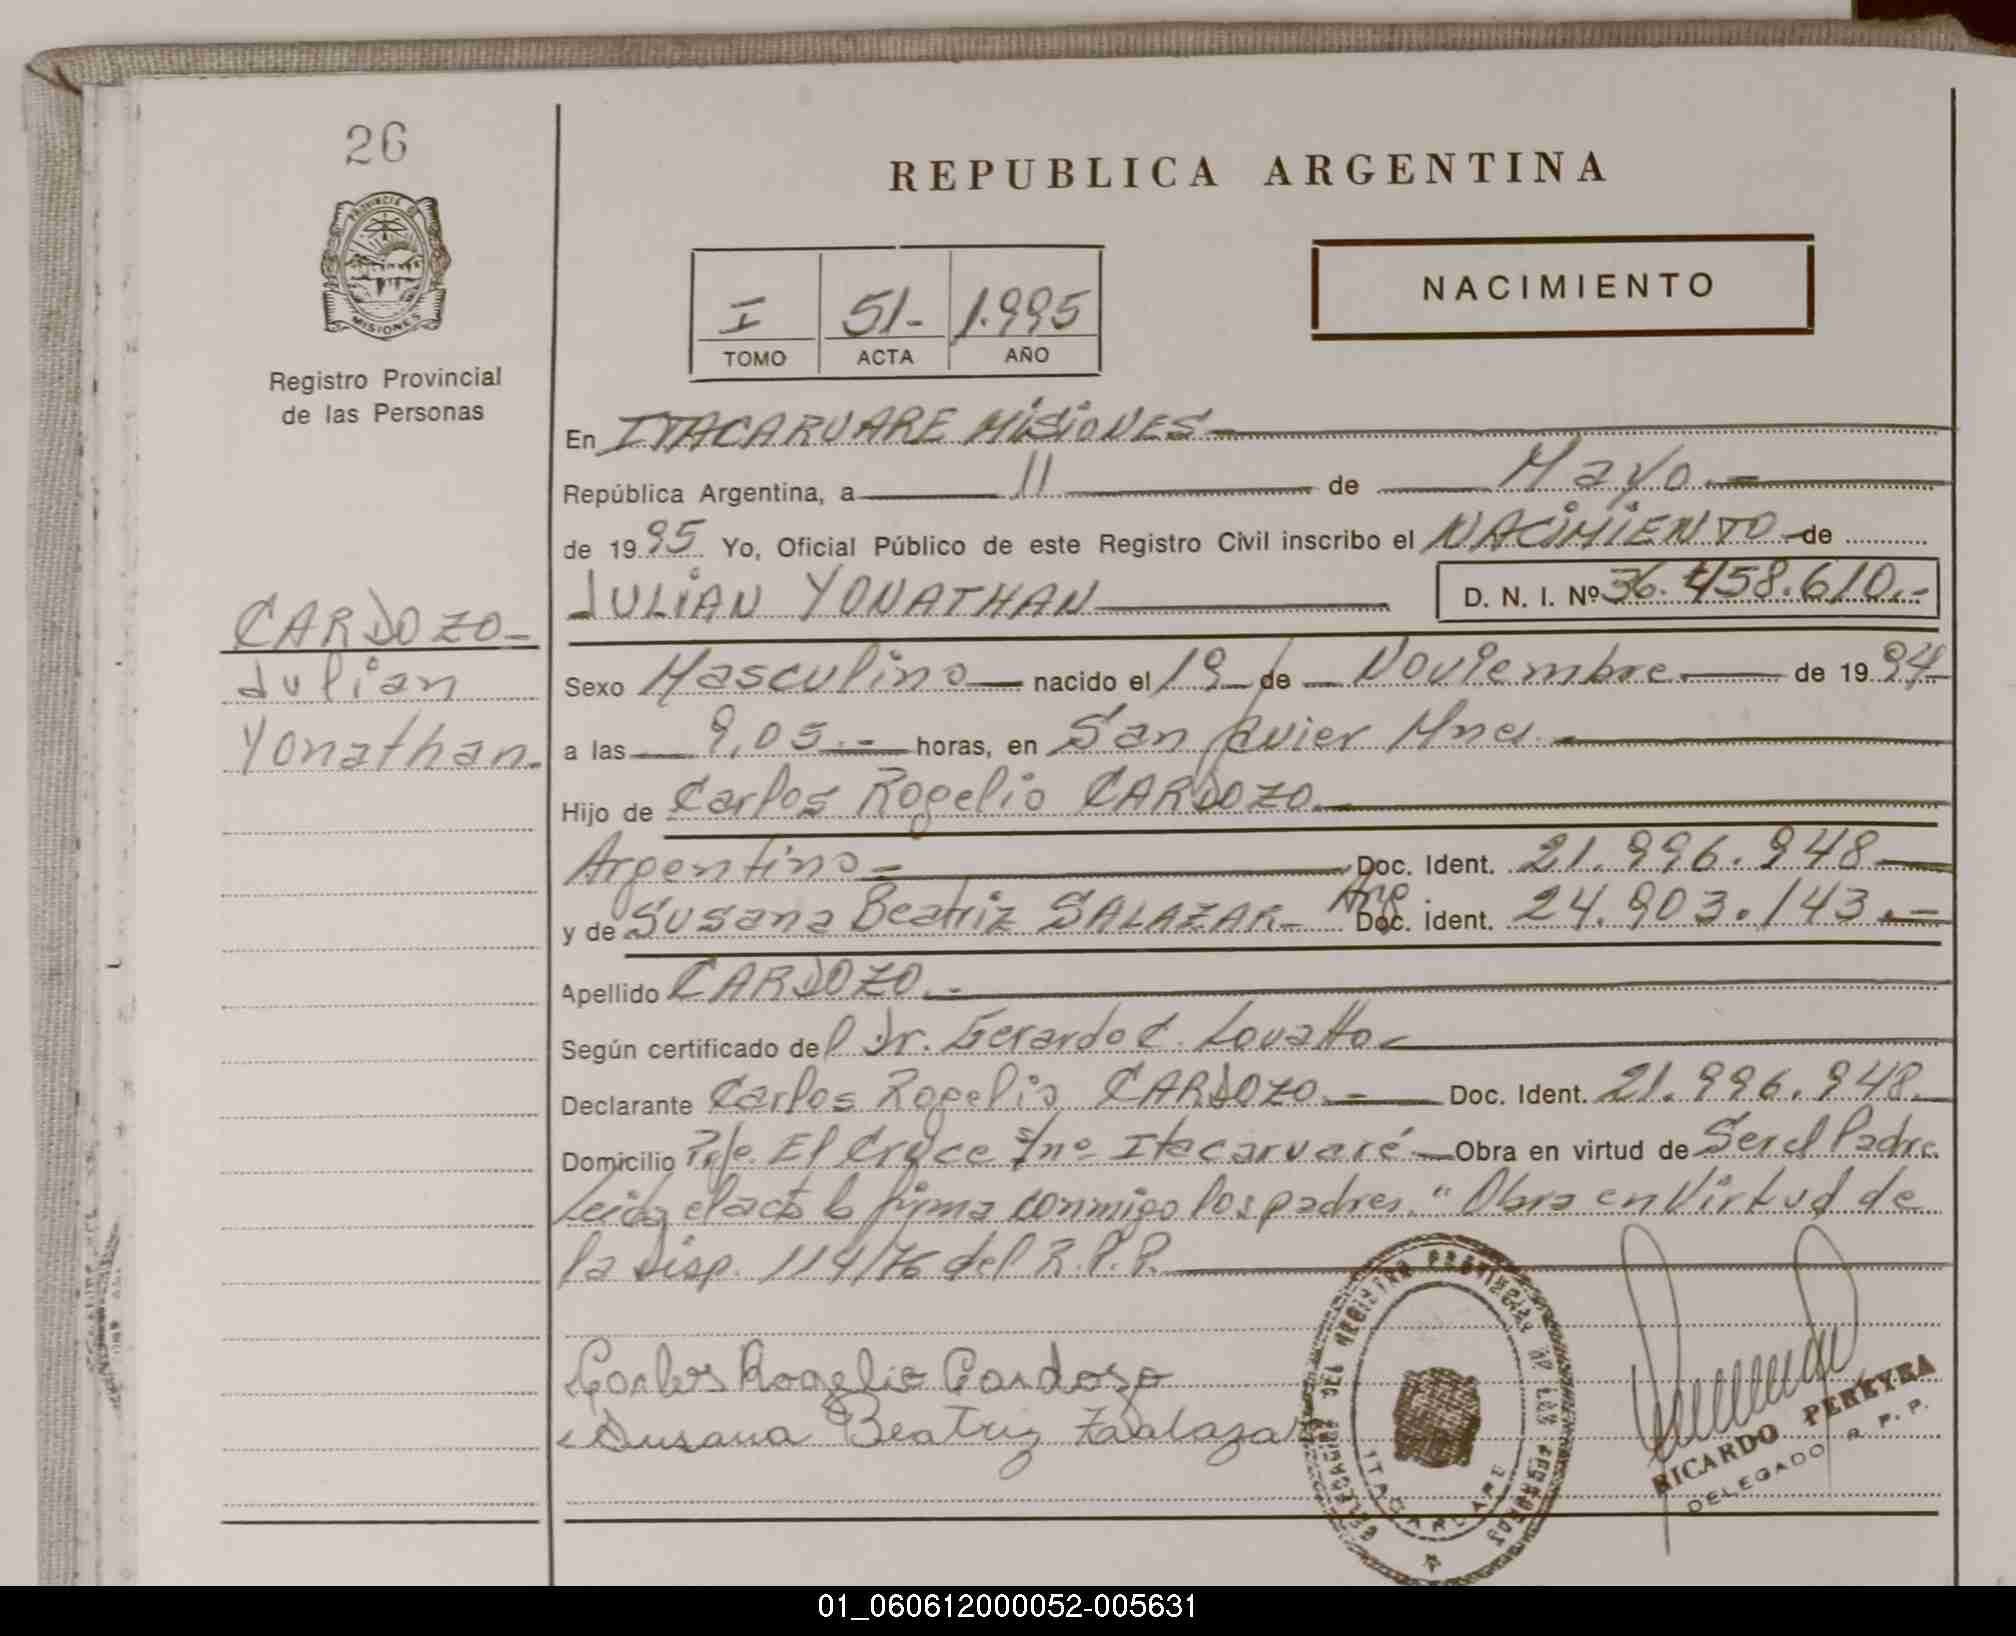 26
PROVINCIA DE
MISIONES
Registro Provincial
de las Personas
REPUBLICA ARGENTINA
NACIMIENTO
I 51- 1.995
TOMO ACTA AÑO
En ITACARUARE MISIONES -
República Argentina, a 11 de Mayo.-
de 1995 Yo, Oficial Público de este Registro Civil inscribo el NACIMIENTO de
JULIAN YONATHAN D. N. I. Nº 36.458.610.-
CARDOZO-
Julian
Yonathan.
Sexo Masculino nacido el 19 de Noviembre de 1994
a las 9,05.- horas, en San Javier Mnes.
Hijo de Carlos Rogelio CARDOZO.
Argentino- Doc. Ident. 21.996.948
y de Susana Beatriz SALAZAR- Arg. Doc. Ident. 24.903.143.-
Apellido CARDOZO.-
Según certificado del Dr. Gerardo C. Lovatto
Declarante Carlos Rogelio CARDOZO.- Doc. Ident. 21.996.948.
Domicilio Pje. El Cruce s/nº Itacaruaré- Obra en virtud de Ser el Padre
Leida el acta la firma conmigo los padres." Obra en Virtud de
la Disp. 114/76 del R.P.P.
Carlos Rogelio Cardozo
Susana Beatriz Zaalazar
REGISTRO PROVINCIAL DE LAS PERSONAS
ITACARUARE
RICARDO PEREYRA
DELEGADO R. P. P.
01_060612000052-005631